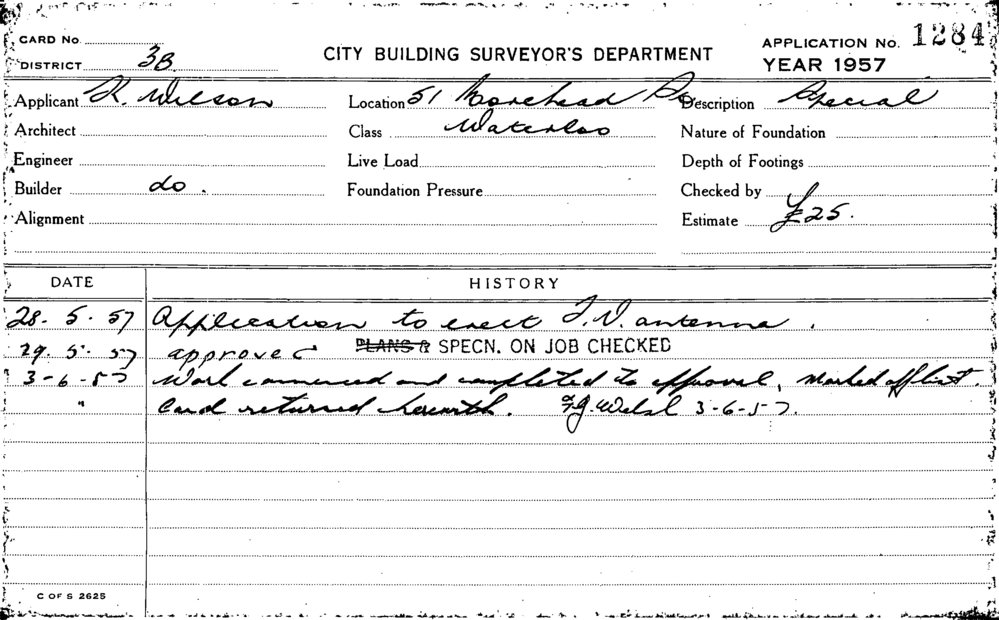 CARD No.
DISTRICT 3B
CITY BUILDING SURVEYOR'S DEPARTMENT
APPLICATION No. 1284
YEAR 1957
Applicant R. Wilson Location 51 Morehead St Description Special
Architect Class Waterloo Nature of Foundation
Engineer Live Load Depth of Footings
Builder do. Foundation Pressure Checked by
Alignment Estimate £25.
DATE HISTORY
28. 5. 57 Application to erect T.V. antenna.
29. 5. 57 approved PLANS & SPECN. ON JOB CHECKED
3-6-57 Work commenced and completed to approval, Marked off list.
" Card returned herewith. 3-6-57.
C OF S 2625